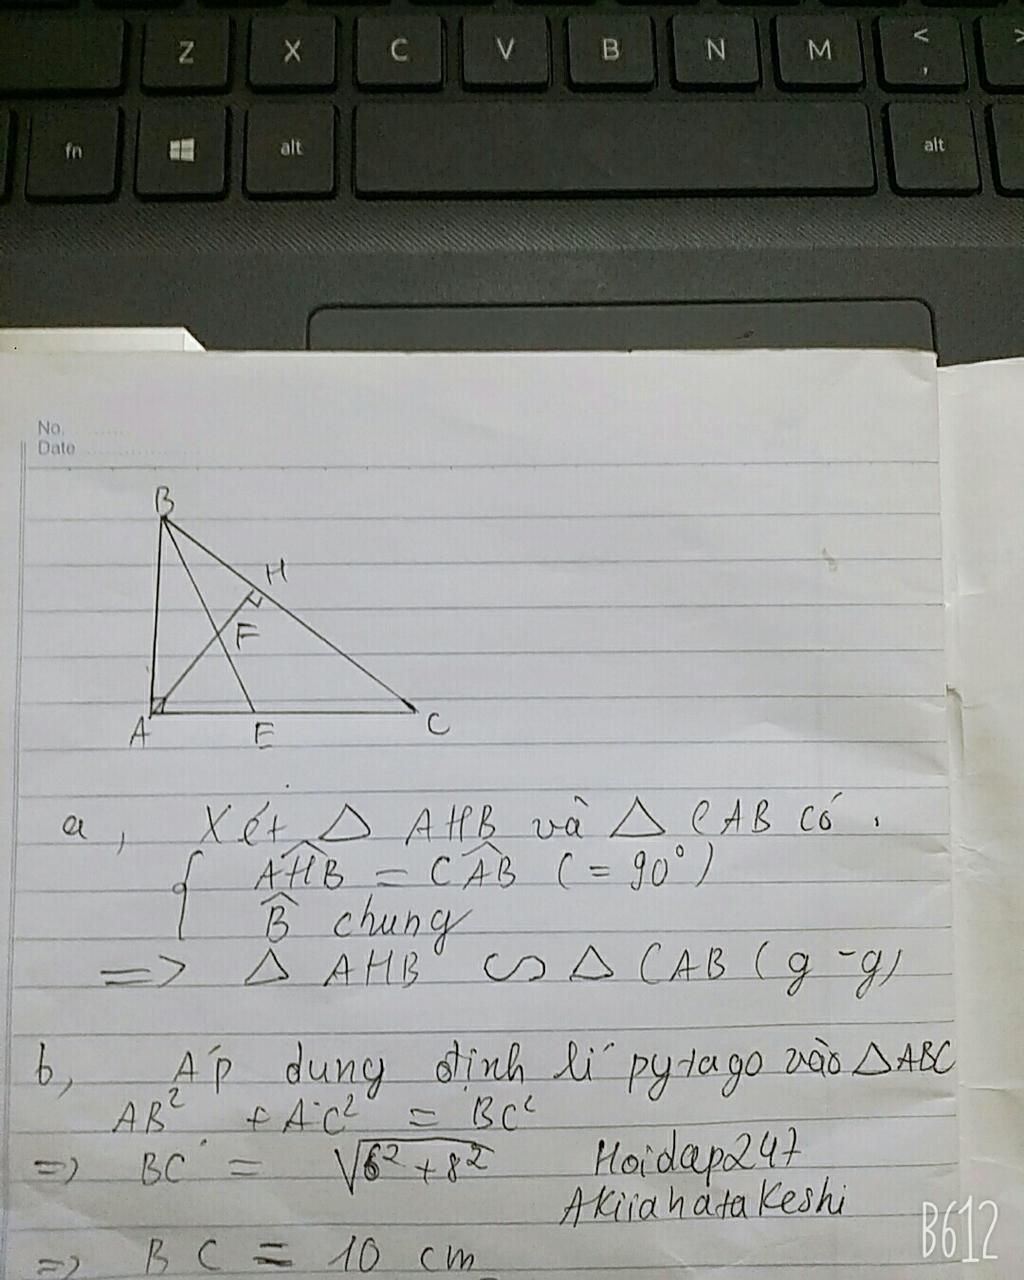 Z X C V B N M < , >
fn alt alt
No.
Date
B
H
F
A E C
a, Xét △ AHB và △ CAB có.
AHB = CAB (= 90°)
B chung
=> △ AHB ∽ △ CAB (g-g)
b, Áp dung định lí pytago vào △ABC
AB² + AC² = BC²
=> BC = √6² + 8²
Hoidap247
Akiiahatakeshi
=> BC = 10 cm
B612